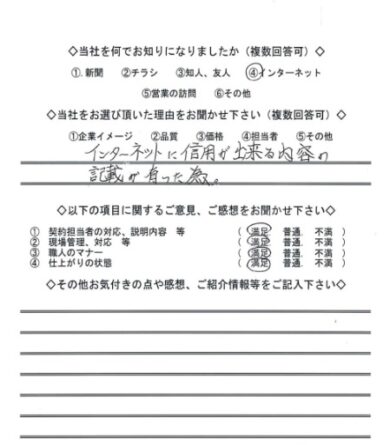 ◇当社を何でお知りになりましたか（複数回答可）◇
①.新聞 ②チラシ ③知人、友人 ④インターネット
⑤営業の訪問 ⑥その他
◇当社をお選び頂いた理由をお聞かせ下さい（複数回答可）◇
①企業イメージ ②品質 ③価格 ④担当者 ⑤その他
インターネットに信用が出来る内容の
記載が有った為。
◇以下の項目に関するご意見、ご感想をお聞かせ下さい◇
① 契約担当者の対応、説明内容 等 （ 満足 普通. 不満 ）
② 現場管理、対応 等 （ 満足 普通. 不満 ）
③ 職人のマナー （ 満足 普通. 不満 ）
④ 仕上がりの状態 （ 満足 普通. 不満 ）
◇その他お気付きの点や感想、ご紹介情報等をご記入下さい◇